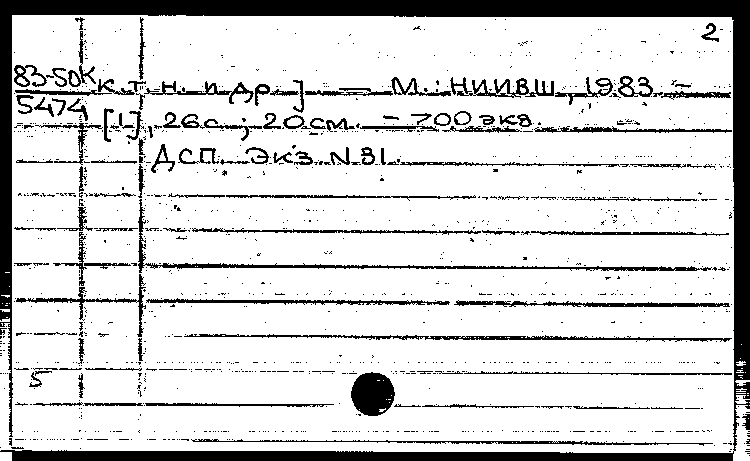 2
83-50К к.т.н. и др.] — М.: НИИВШ, 1983 —
5474 [1], 26с.; 20см. — 700 экз. —
ДСП. Экз. N 81.
5